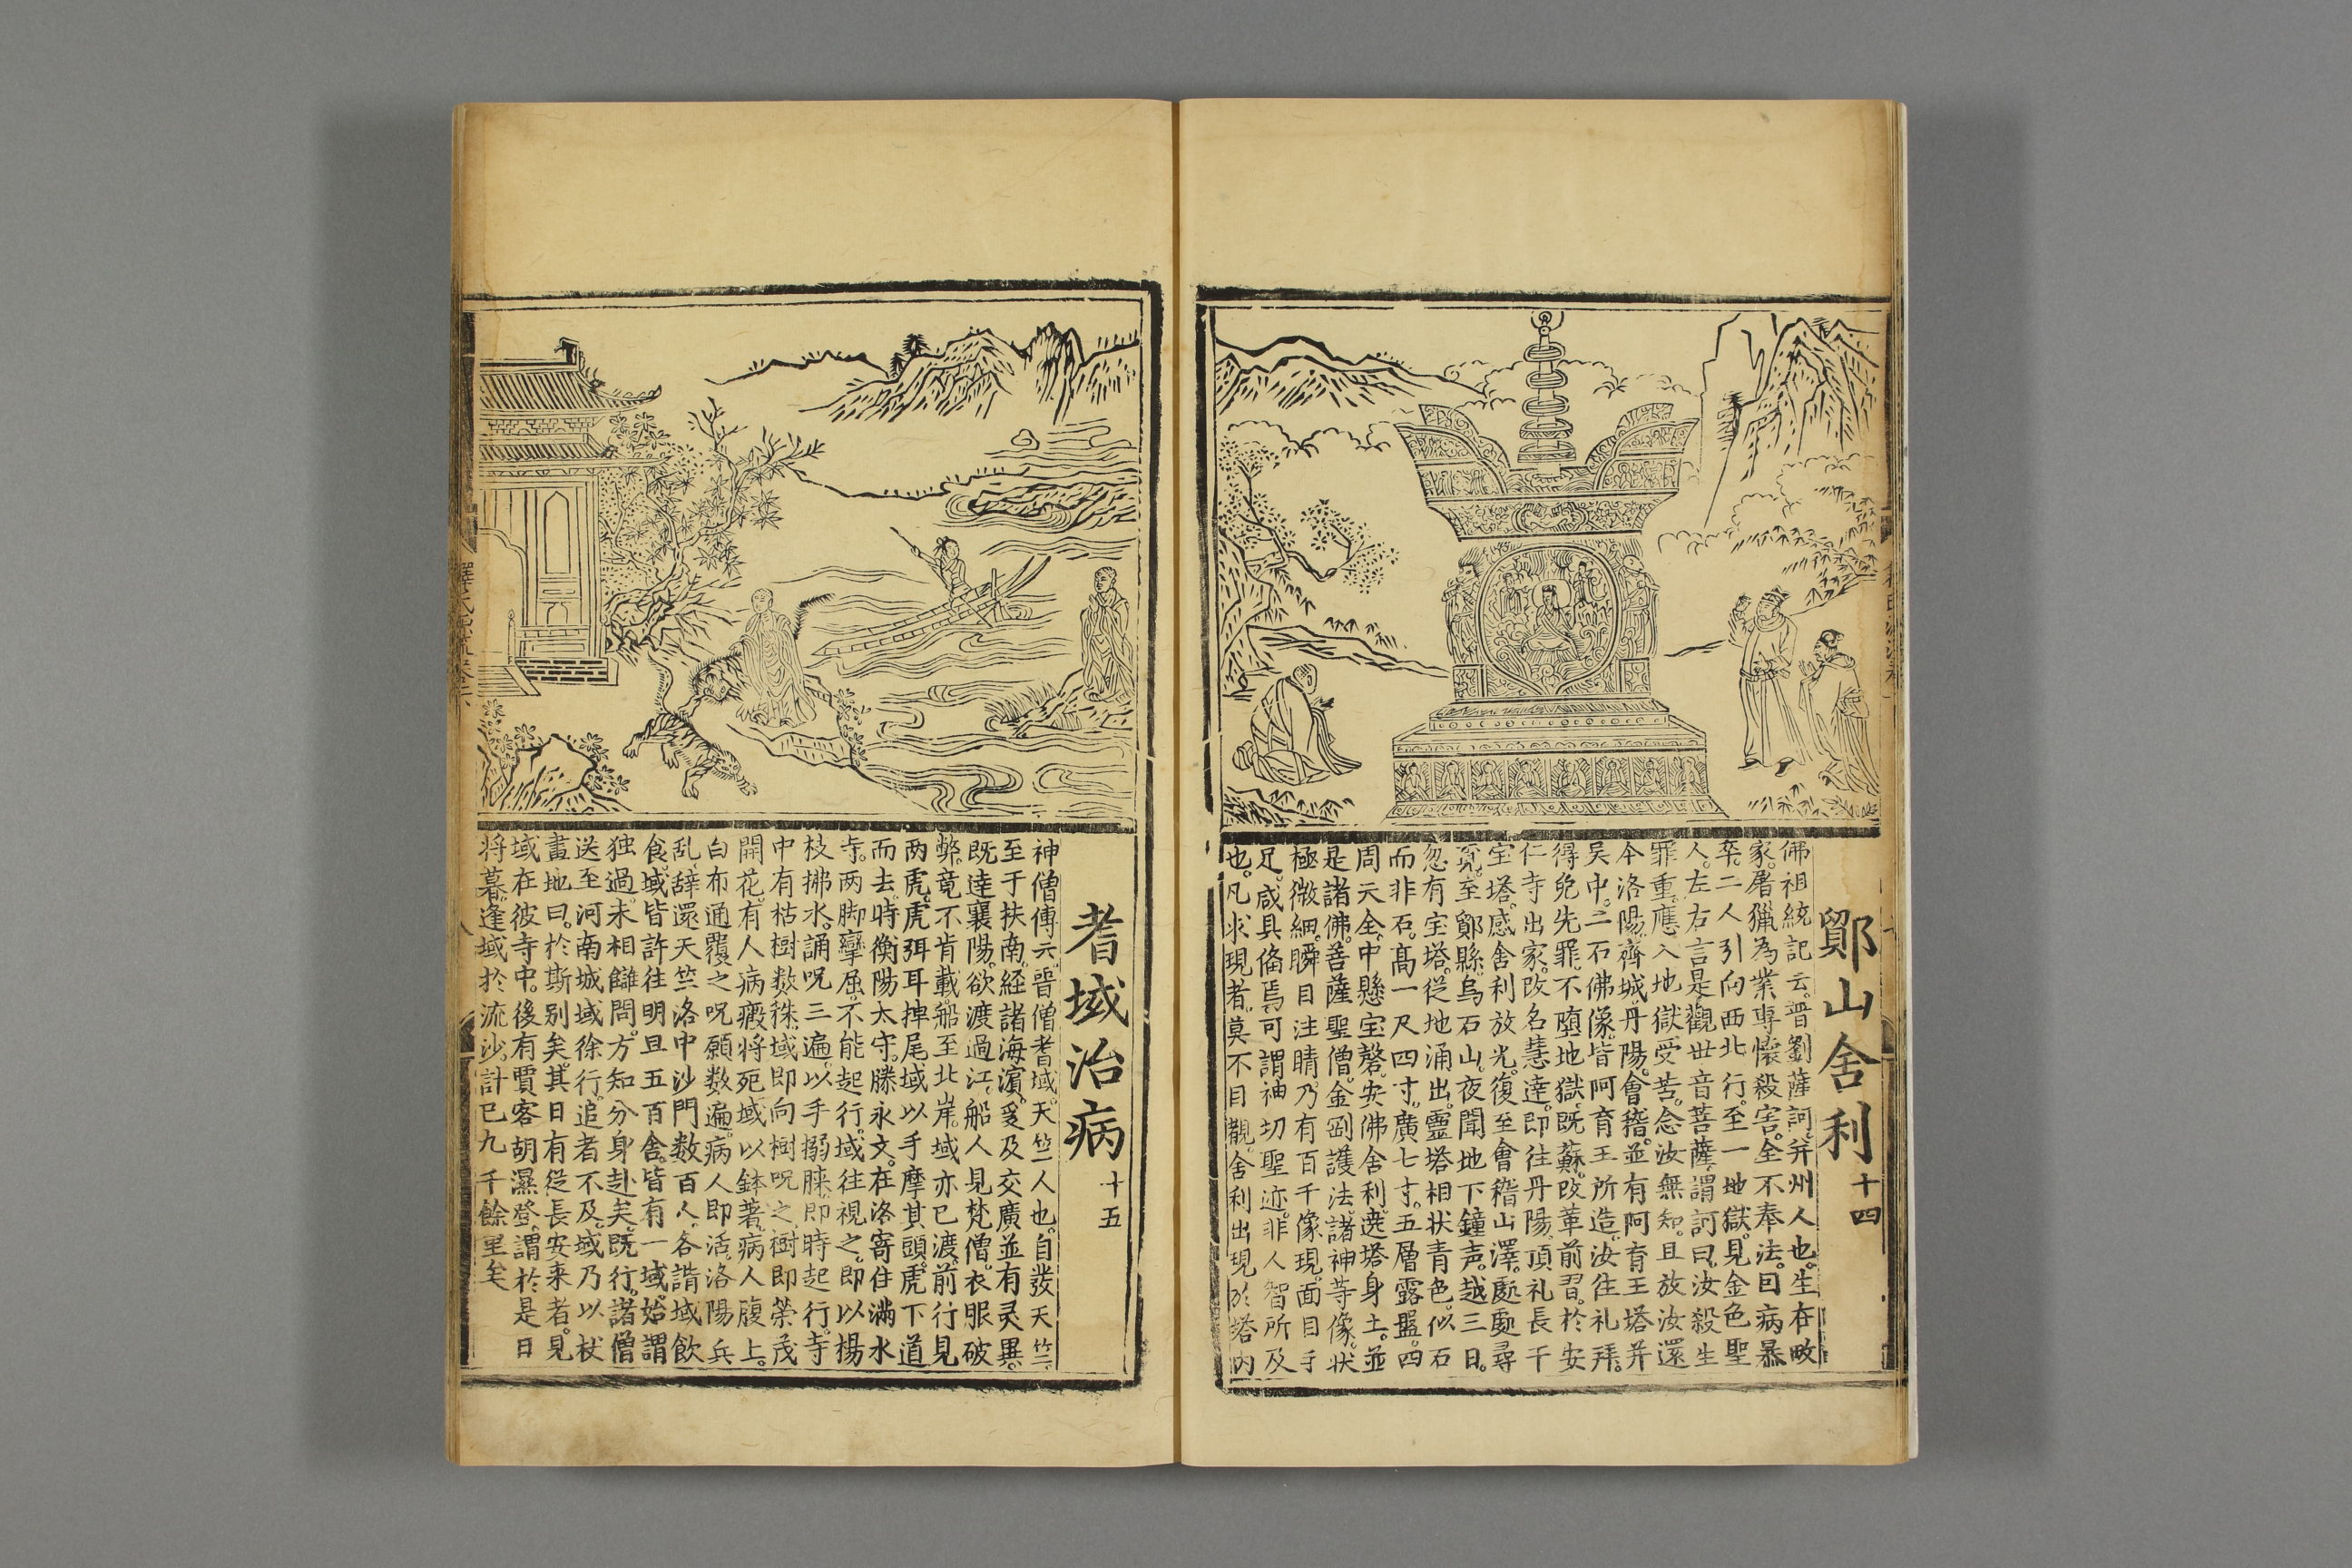 鄮山舍利十四
佛祖統記云晋劉薩訶并州人也生在畋
家屠獵為業專懷殺害全不奉法因病暴
卒二人引向西北行至一地獄見金色聖
人左右言是觀世音菩薩謂訶曰汝殺生
罪重應入地獄受苦念汝無知且放汝還
今洛陽齊城丹陽會稽並有阿育王塔并
吳中二石佛像皆阿育王所造汝往礼拜
得免先罪不堕地獄既蘇改革前習於安
仁寺出家改名慧達即往丹陽頂礼長干
宝塔感舍利放光復至會稽山澤處處尋
覓至鄮縣烏石山夜聞地下鐘声越三日
忽有宝塔從地涌出靈塔相状青色似石
而非石高一尺四寸廣七寸五層露盤四
周天全中懸宝磬安佛舍利遶塔身上並
是諸佛菩薩聖僧金剛護法諸神等像状
極微細瞬目注睛乃有百千像現面目手
足咸具俻焉可謂神切聖迹非人智所及
也凡求現者莫不目覩舍利出現於塔内
耆域治病十五
神僧傳云晋僧耆域天竺人也自發天竺
至于扶南経諸海濵爰及交廣並有灵異
既逹襄陽欲渡過江船人見梵僧衣服破
弊竟不肯載船至北岸域亦已渡前行見
两虎虎弭耳掉尾域以手摩其頭虎下道
而去時衡陽太守滕永文在洛寄住滿水
寺两脚攣屈不能起行域往視之即以楊
枝拂水誦呪三遍以手搦膝即時起行寺
中有枯樹数株域即向樹呪之樹即荣茂
開花有人病癥将死域以鉢著病人腹上
白布通覆之呪願数遍病人即活洛陽兵
乱辭還天竺洛中沙門数百人各請域飲
食域皆許往明旦五百舍皆有一域始謂
独過末相讎問方知分身赴矣既行諸僧
送至河南城域徐行追者不及域乃以杖
畫地曰於斯别矣其日有從長安来者見
域在彼寺中後有賈客胡濕登謂於是日
将暮逢域於流沙計已九千餘里矣